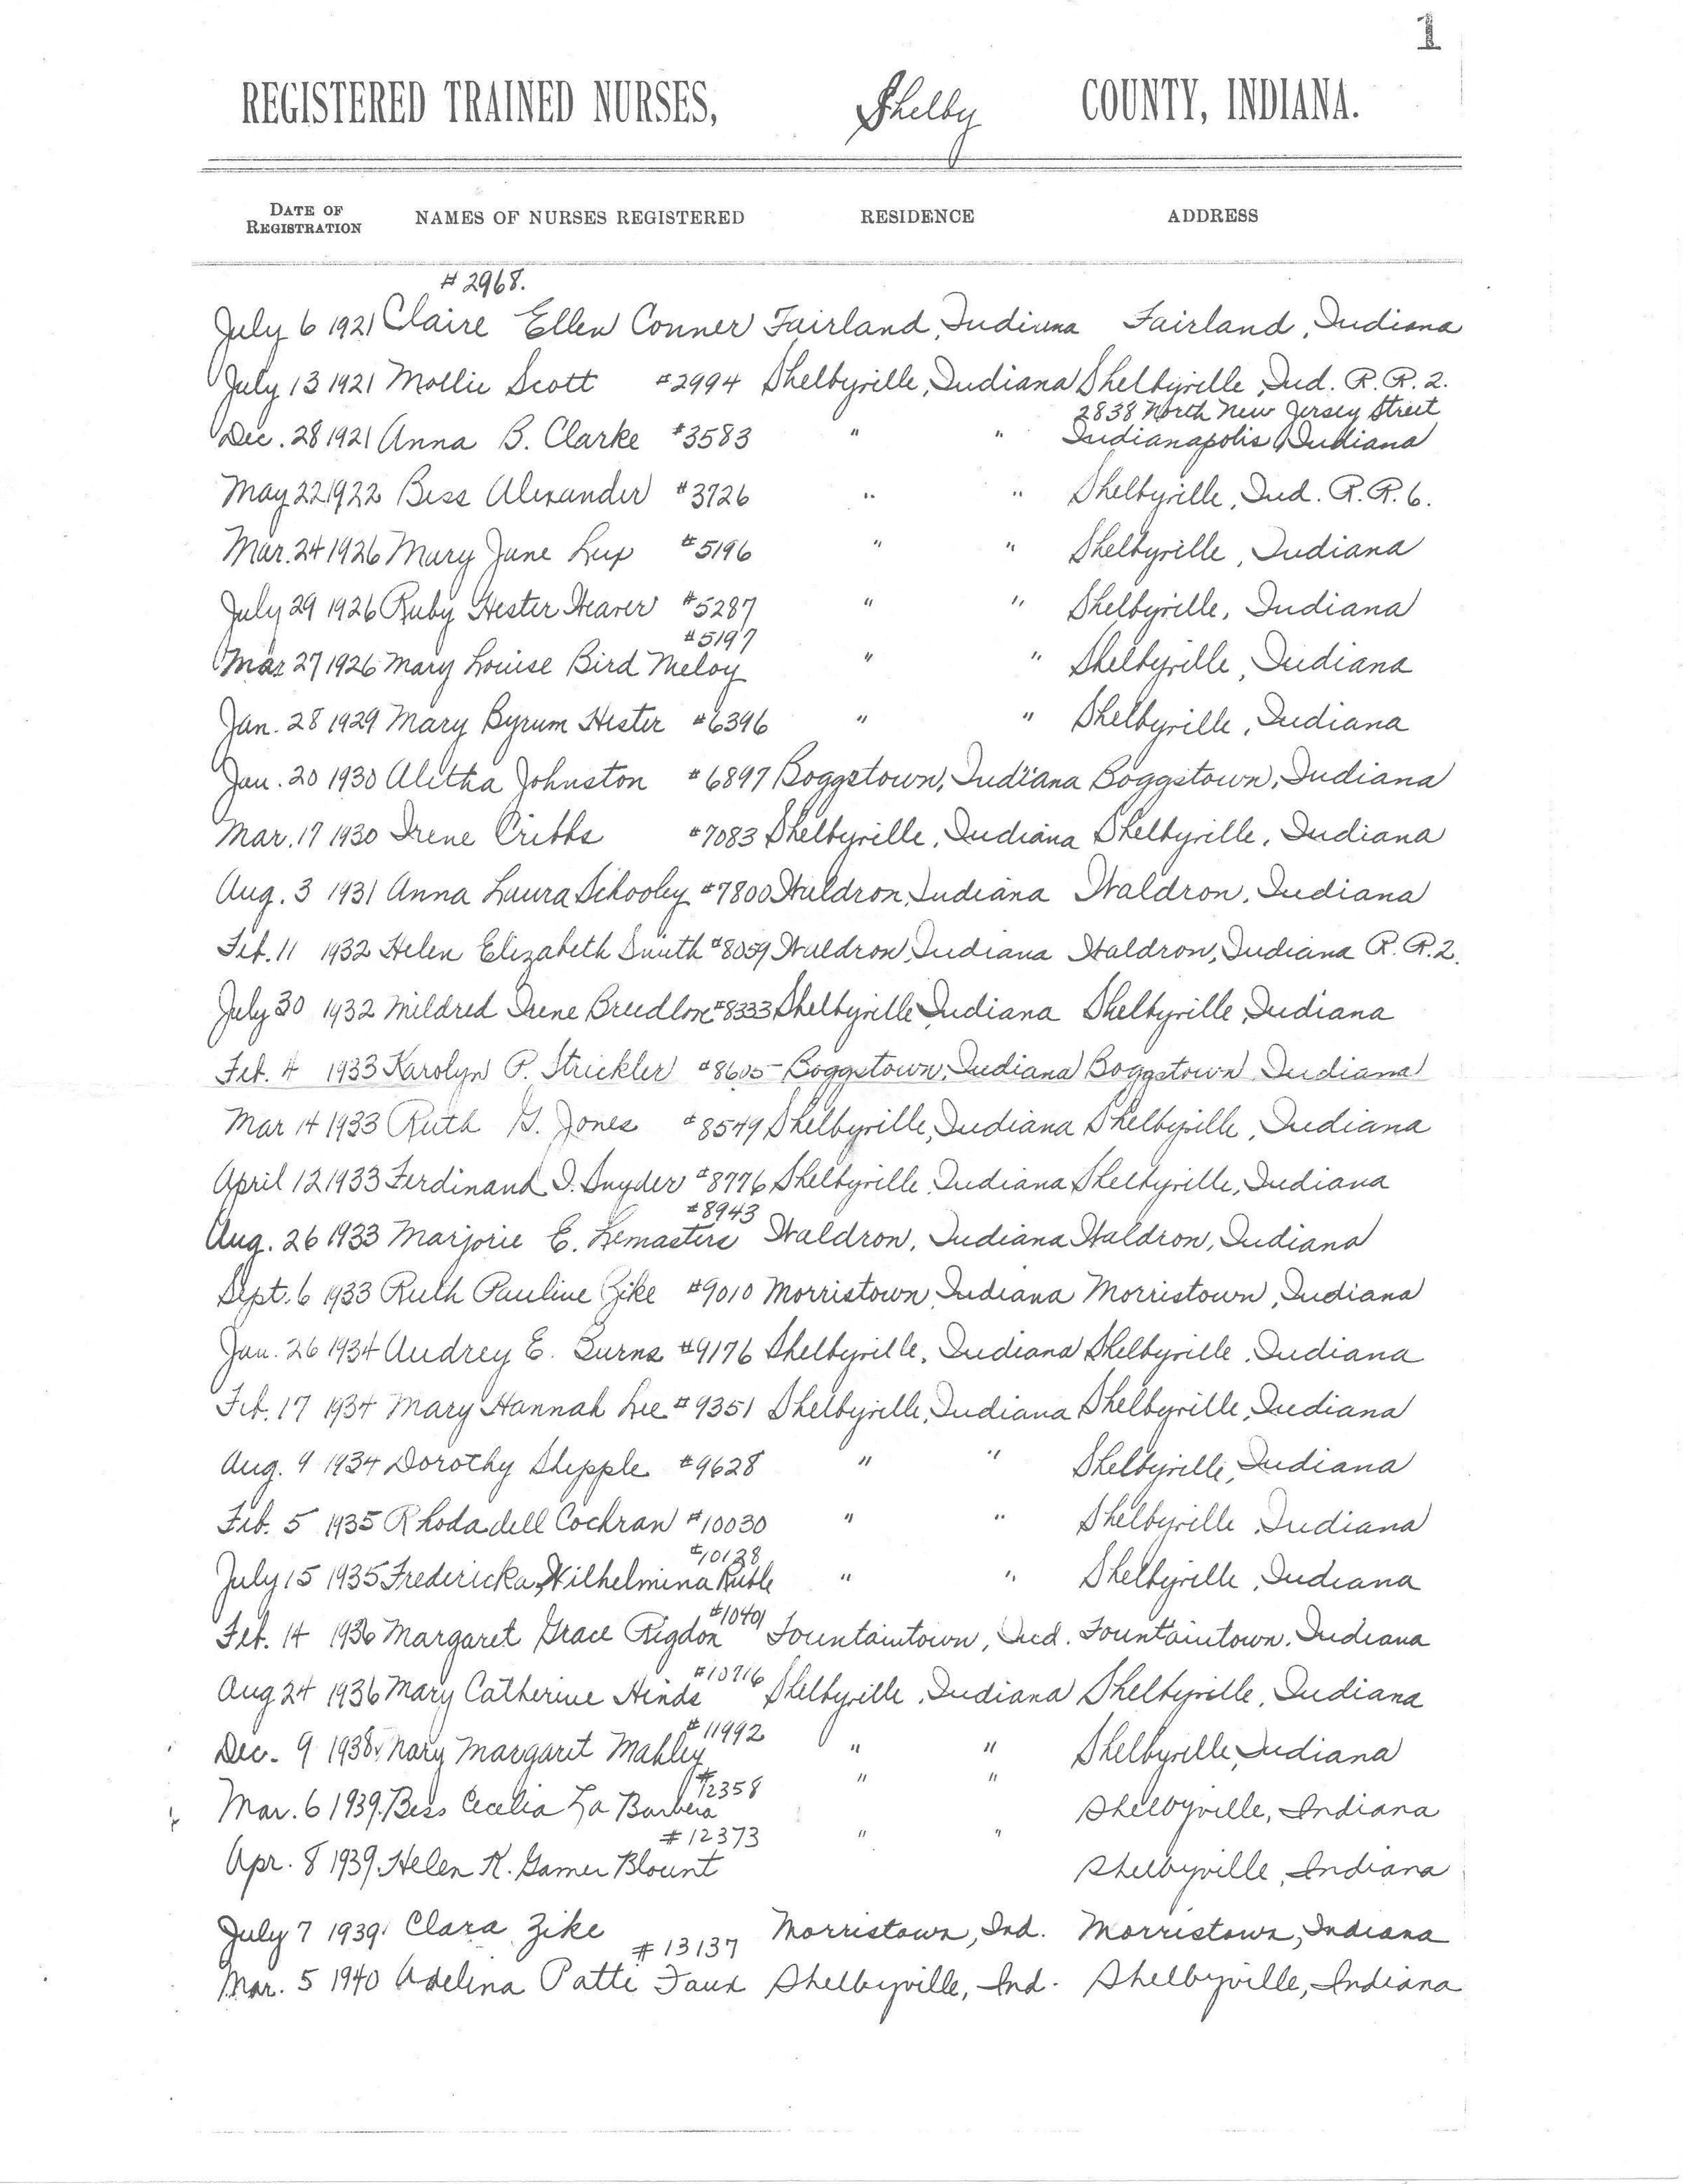 1
REGISTERED TRAINED NURSES, Shelby COUNTY, INDIANA.
DATE OF REGISTRATION NAMES OF NURSES REGISTERED RESIDENCE ADDRESS
# 2968.
July 6 1921 Claire Ellen Conner Fairland, Indiana Fairland, Indiana
July 13 1921 Mollie Scott #2994 Shelbyville, Indiana Shelbyville, Ind. R.R. 2.
2838 North New Jersey Street
Dec. 28 1921 Anna B. Clarke #3583 " " Indianapolis, Indiana
May 22 1922 Bess Alexander #3726 " " Shelbyville, Ind. R.R. 6.
Mar. 24 1926 Mary Jane Lux #5196 " " Shelbyville, Indiana
July 29 1926 Ruby Hester Weaver #5287 " " Shelbyville, Indiana
#5197
Mar 27 1926 Mary Louise Bird Meloy " " Shelbyville, Indiana
Jan. 28 1929 Mary Byrum Hester #6396 " " Shelbyville, Indiana
Jan. 20 1930 Aletha Johnston #6897 Boggstown, Indiana Boggstown, Indiana
Mar. 17 1930 Irene Cribbs #7083 Shelbyville, Indiana Shelbyville, Indiana
Aug. 3 1931 Anna Laura Schooley #7800 Waldron, Indiana Waldron, Indiana
Feb. 11 1932 Helen Elizabeth Smith #8059 Waldron, Indiana Waldron, Indiana R.R. 2.
July 30 1932 Mildred Irene Breedlove #8333 Shelbyville Indiana Shelbyville, Indiana
Feb. 4 1933 Karolyn P. Strickler #8605 Boggstown, Indiana Boggstown, Indiana
Mar 14 1933 Ruth G. Jones #8549 Shelbyville, Indiana Shelbyville, Indiana
April 12 1933 Ferdinand I. Snyder #8776 Shelbyville, Indiana Shelbyville, Indiana
#8943
Aug. 26 1933 Marjorie E. Lemasters Waldron, Indiana Waldron, Indiana
Sept. 6 1933 Ruth Pauline Zike #9010 Morristown, Indiana Morristown, Indiana
Jan. 26 1934 Audrey E. Burns #9176 Shelbyville, Indiana Shelbyville, Indiana
Feb. 17 1934 Mary Hannah Lee #9351 Shelbyville, Indiana Shelbyville, Indiana
Aug. 9 1934 Dorothy Shepple #9628 " " Shelbyville, Indiana
Feb. 5 1935 Rhodadell Cochran #10030 " " Shelbyville, Indiana
#10128
July 15 1935 Fredericka Wilhelmina Ruble " " Shelbyville, Indiana
#10401
Feb. 14 1936 Margaret Grace Rigdon Fountaintown, Ind. Fountaintown, Indiana
#10716
Aug 24 1936 Mary Catherine Hinds Shelbyville, Indiana Shelbyville, Indiana
#11992
Dec. 9 1938 Mary Margaret Mahley " " Shelbyville, Indiana
#12358
Mar. 6 1939. Bess Cecelia La Barbera " " Shelbyville, Indiana
#12373
Apr. 8 1939. Helen K. Gamer Blount " " Shelbyville, Indiana
July 7 1939. Clara Zike Morristown, Ind. Morristown, Indiana
#13137
Mar. 5 1940 Adelina Patti Faux Shelbyville, Ind. Shelbyville, Indiana